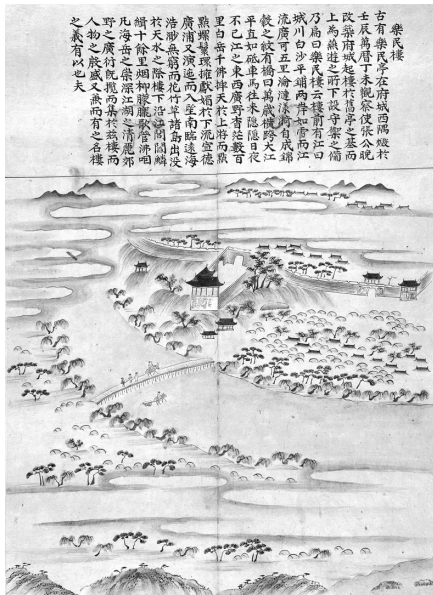 樂民樓
古有樂民亭在府城西隅燬於
壬辰萬曆丁未觀察使張公晩
改築府城起樓於舊亭之基而
上為燕遊之所下設守禦之備
乃扁曰樂民樓云樓前有江曰
城川白沙平鋪兩岸如雪而江
流廣可五里淪漣漾綺自成錦
縠之紋有橋曰萬歲橫跨大江
平直如砥車馬往來隱隱日夜
不已江之東西廣野杳茫數百
里白岳千佛捽天於上游而點
點螺鬟環擁獻媚於下流宣德
廣浦又演迤而入望南臨遠海
浩渺無窮而花竹草諸島出沒
於天水之際樓下沿江閭閻鱗
緝十餘里烟柳朦朧歌管沸咽
凡海岳之深江湖之清麗郊
野之廣衍旣攬而集於玆樓而
人物之殷盛又兼而有之名樓
之義有以也夫